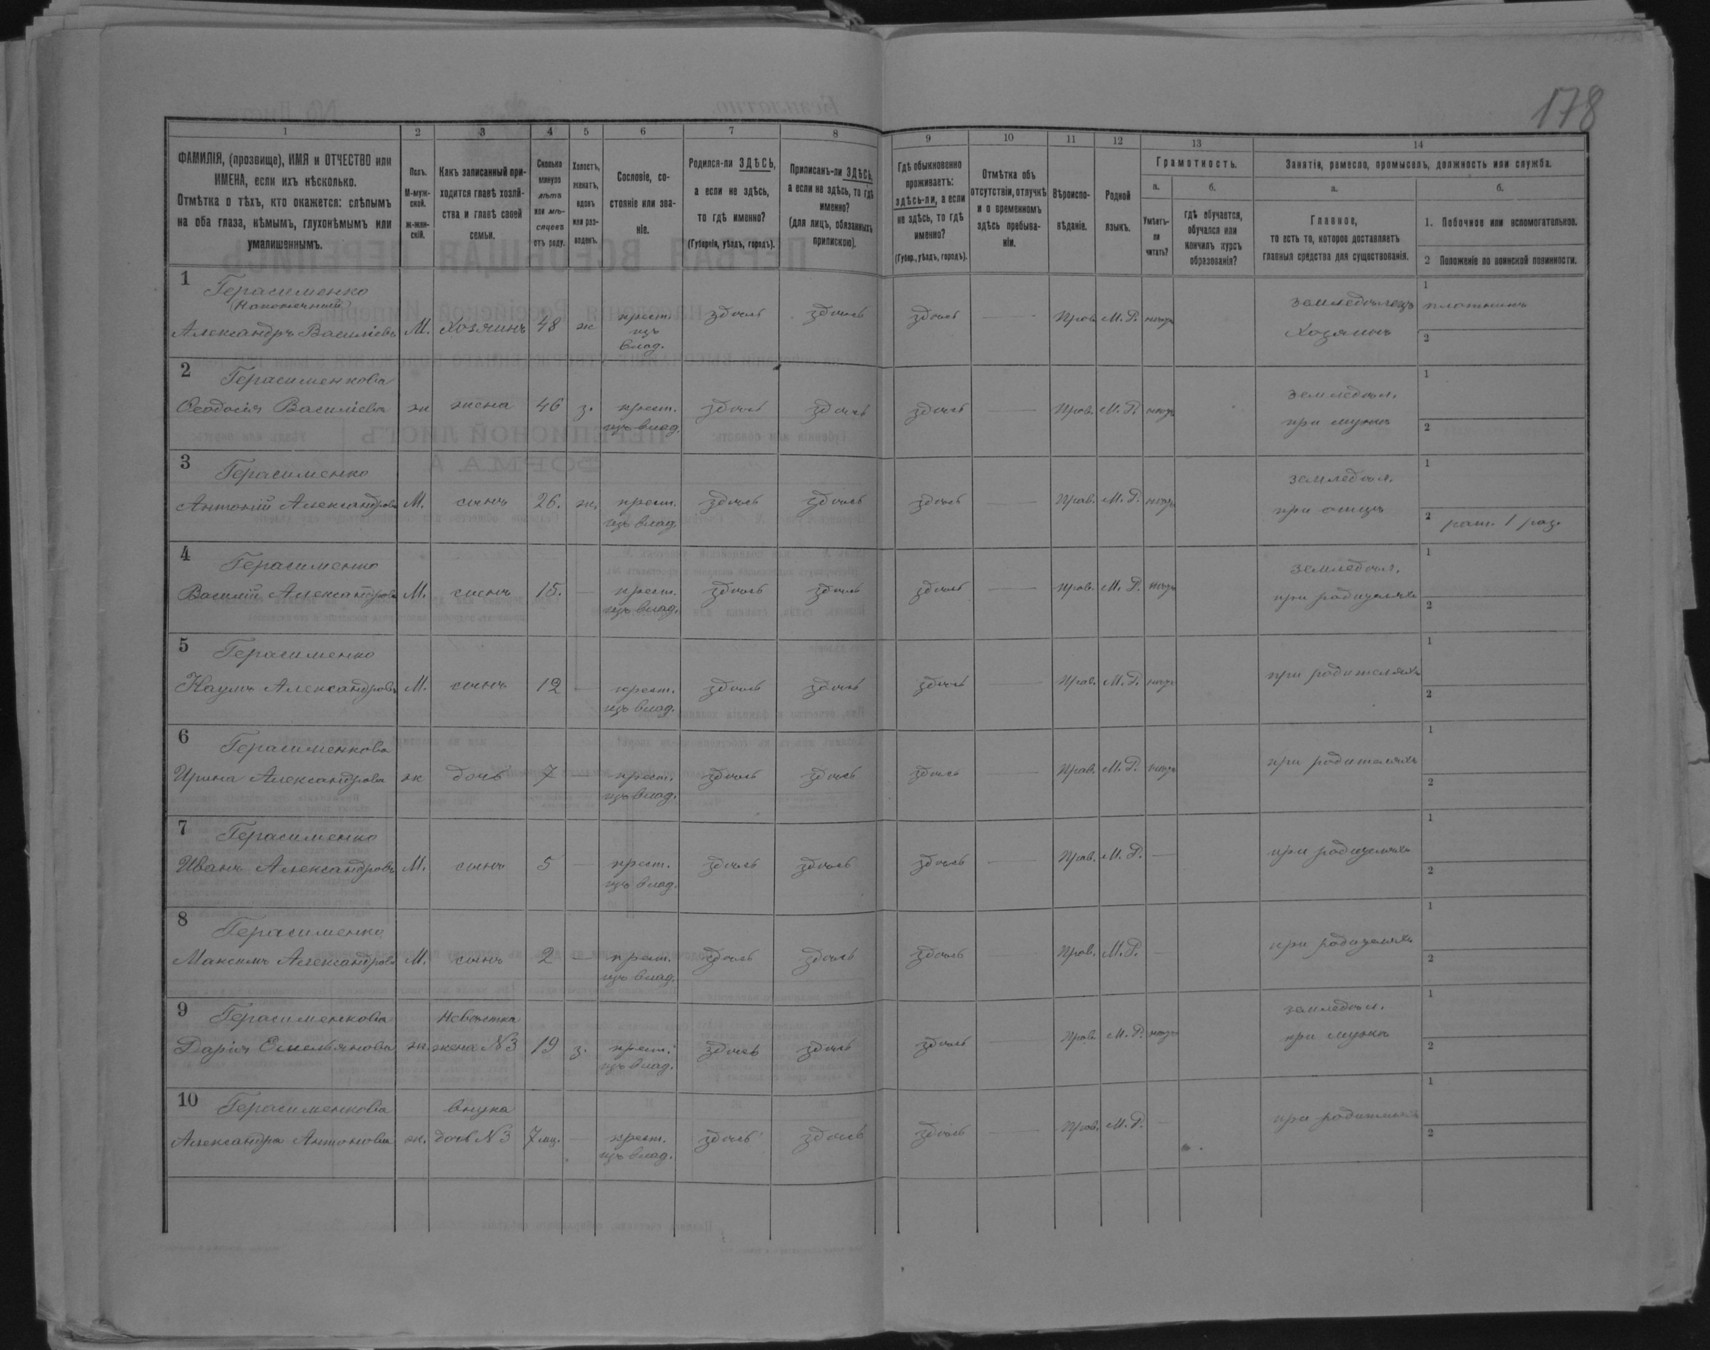 178
1 2 3 4 5 6 7 8 9 10 11 12 13 14
ФАМИЛІЯ, (прозвище), ИМЯ и ОТЧЕСТВО или ИМЕНА, если ихъ нѣсколько.
Отмѣтка о тѣхъ, кто окажется: слѣпымъ на оба глаза, нѣмымъ, глухонѣмымъ или умалишеннымъ.
Полъ. М-муж-ской. Ж-жен-скій.
Какъ записанный при-ходится главѣ хозяй-ства и главѣ своей семьи.
Сколько минуло лѣтъ или мѣ-сяцевъ отъ роду.
Холостъ, женатъ, вдовъ или раз-веденъ.
Сословіе, со-стояніе или зва-ніе.
Родился-ли ЗДѢСЬ, а если не здѣсь, то гдѣ именно?
(Губернія, уѣздъ, городъ).
Приписанъ-ли ЗДѢСЬ, а если не здѣсь, то гдѣ именно?
(для лицъ, обязанныхъ припискою).
Гдѣ обыкновенно проживаетъ: здѣсь-ли, а если не здѣсь, то гдѣ именно?
(Губер., уѣздъ, городъ).
Отмѣтка объ отсутствіи, отлучкѣ и о временномъ здѣсь пребыва-ніи.
Вѣроиспо-вѣданіе.
Родной языкъ.
Грамотность.
а. Умѣетъ-ли читать?
б. гдѣ обучается, обучался или кончилъ курсъ образованія?
Занятія, ремесло, промыселъ, должность или служба.
а. Главное, то есть то, которое доставляетъ главныя средства для существованія.
б. 1. Побочное или вспомогательное.
2 Положеніе по воинской повинности.
1 Герасименко
Александръ Васильевъ М. Хозяинъ 48 ж крест. изъ влад. здѣсь здѣсь здѣсь — Прав. М. Р. нѣтъ земледѣлецъ Хозяинъ 1 плотникъ 2
2 Герасименкова
Ѳеодосія Василіева ж жена 46 з. крест. изъ влад. здѣсь здѣсь здѣсь — Прав. М. Р. нѣтъ земледѣл. при мужѣ 1 2
3 Герасименко
Антоній Александровъ М. сынъ 26. ж. крест. изъ влад. здѣсь здѣсь здѣсь — Прав. М. Р. нѣтъ земледѣл. при отцѣ 1 2 рат. 1 раз.
4 Герасименко
Василій Александровъ М. сынъ 15. — крест. изъ влад. здѣсь здѣсь здѣсь — Прав. М. Р. нѣтъ земледѣл. при родителяхъ 1 2
5 Герасименко
Наумъ Александровъ М. сынъ 12 — крест. изъ влад. здѣсь здѣсь здѣсь — Прав. М. Р. нѣтъ при родителяхъ 1 2
6 Герасименкова
Ирина Александрова ж дочь 7 — крест. изъ влад. здѣсь здѣсь здѣсь — Прав. М. Р. нѣтъ при родителяхъ 1 2
7 Герасименко
Иванъ Александровъ М. сынъ 5 — крест. изъ влад. здѣсь здѣсь здѣсь — Прав. М. Р. — при родителяхъ 1 2
8 Герасименко
Максимъ Александровъ М. сынъ 2 — крест. изъ влад. здѣсь здѣсь здѣсь — Прав. М. Р. — при родителяхъ 1 2
9 Герасименкова Невѣстка
Дарія Емельянова ж. жена №3 19 з. крест. изъ влад. здѣсь здѣсь здѣсь — Прав. М. Р. нѣтъ земледѣл. при мужѣ 1 2
10 Герасименкова внучка
Александра Антонова ж. дочь №3 7 мц. — крест. изъ влад. здѣсь здѣсь здѣсь Прав. М. Р. — при родителяхъ 1 2